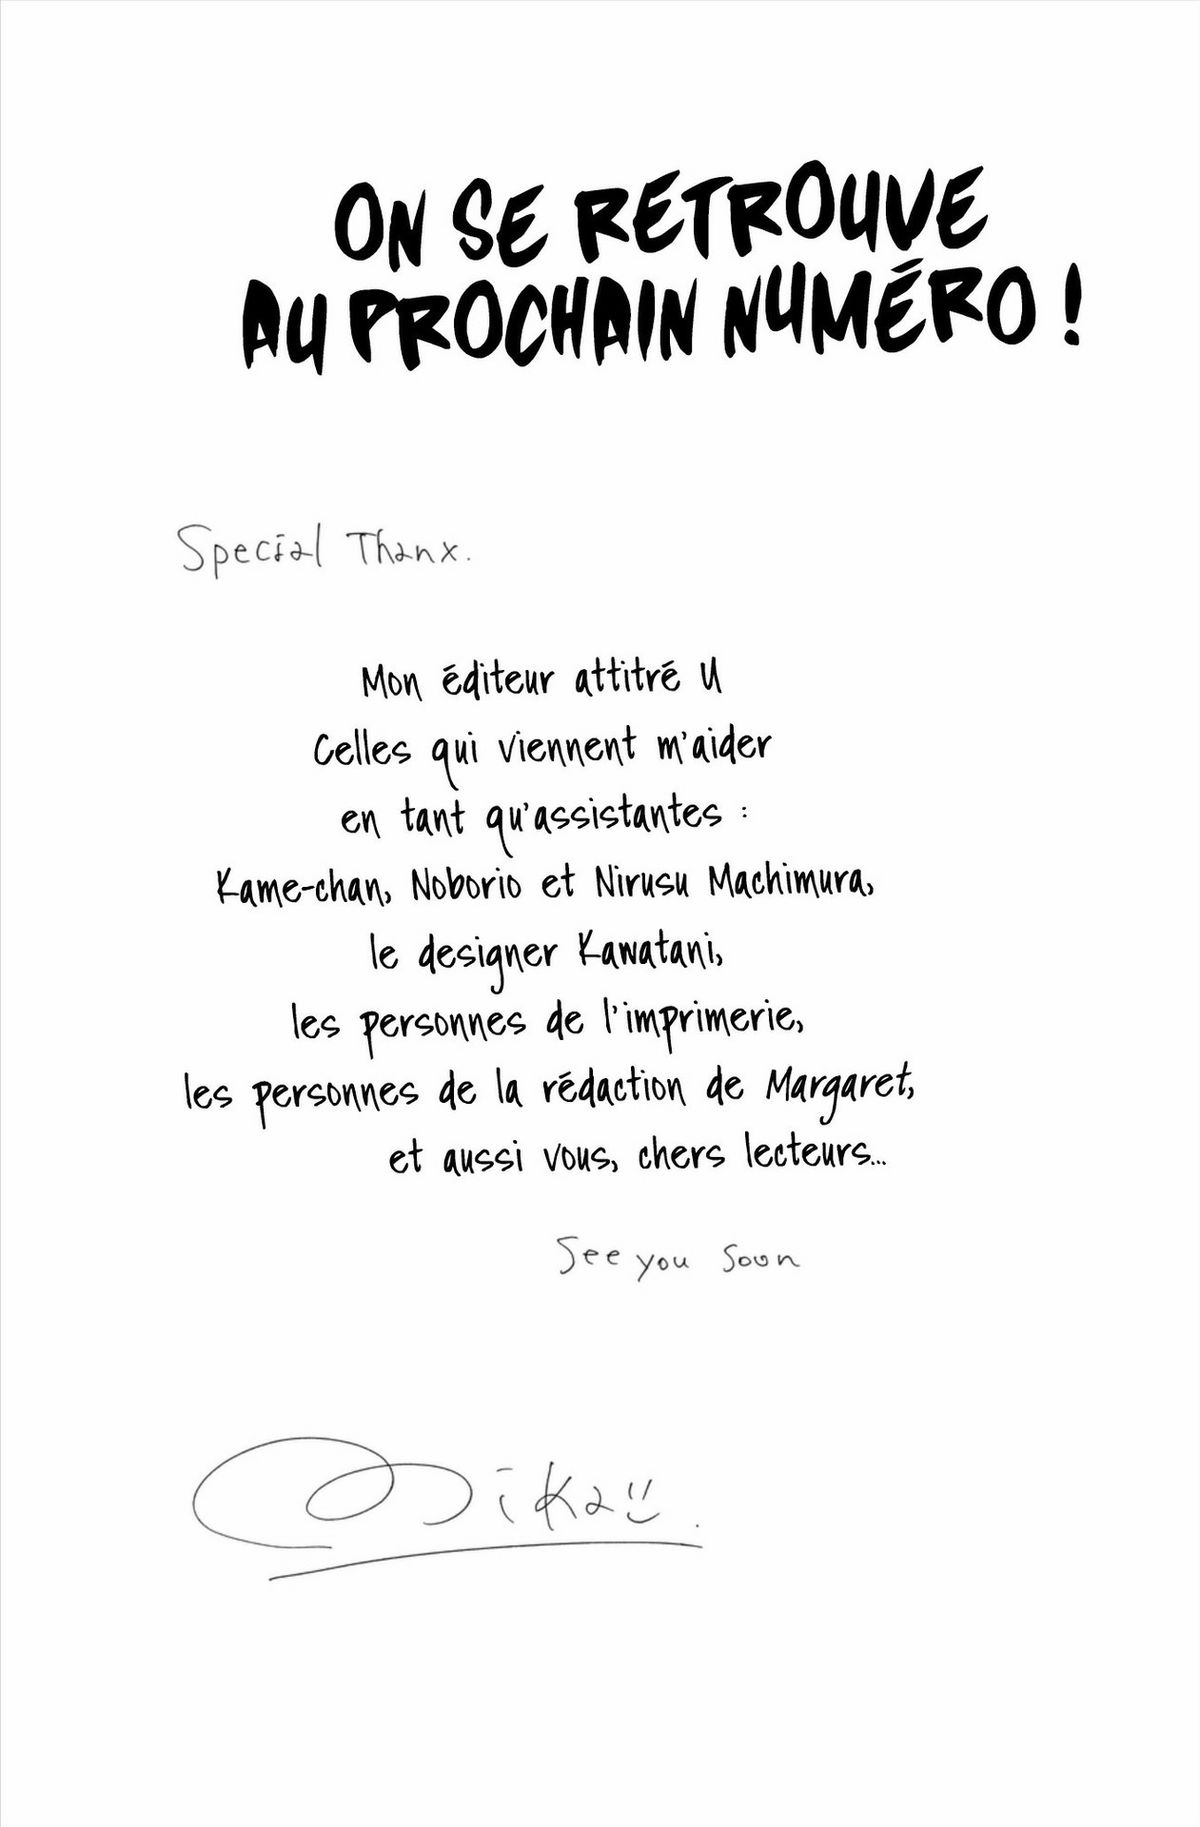 ON SE RETROUVE
AU PROCHAIN NUMÉRO !
Special Thanx.
Mon éditeur attitré U
Celles qui viennent m'aider
en tant qu'assistantes :
Kame-chan, Noborio et Nirusu Machimura,
le designer Kawatani,
les personnes de l'imprimerie,
les personnes de la rédaction de Margaret,
et aussi vous, chers lecteurs...
See you soon
Mika